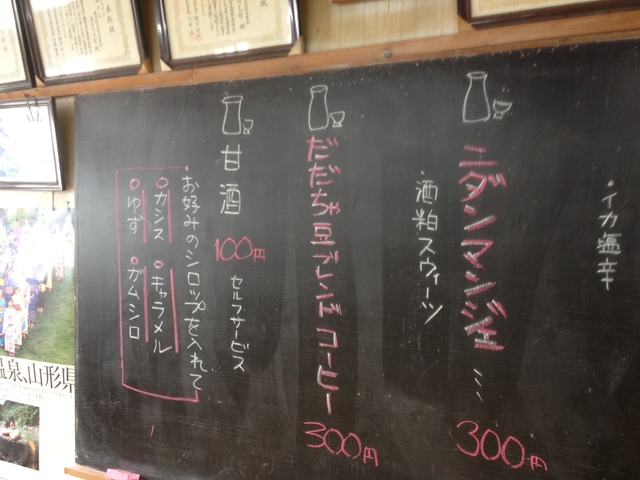 ・イカ塩辛
ニダンマンジェ… 300円
・酒粕スウィーツ
だだちゃ豆ブレンドコーヒー 300円
甘酒 100円 セルフサービス
・お好みのシロップを入れて
○カシス ○キャラメル
○ゆず ○ガムシロ
温泉、山形県